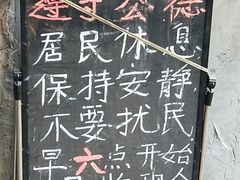 遵守公德
居民休息
保持安静
不要扰民
早六点开始